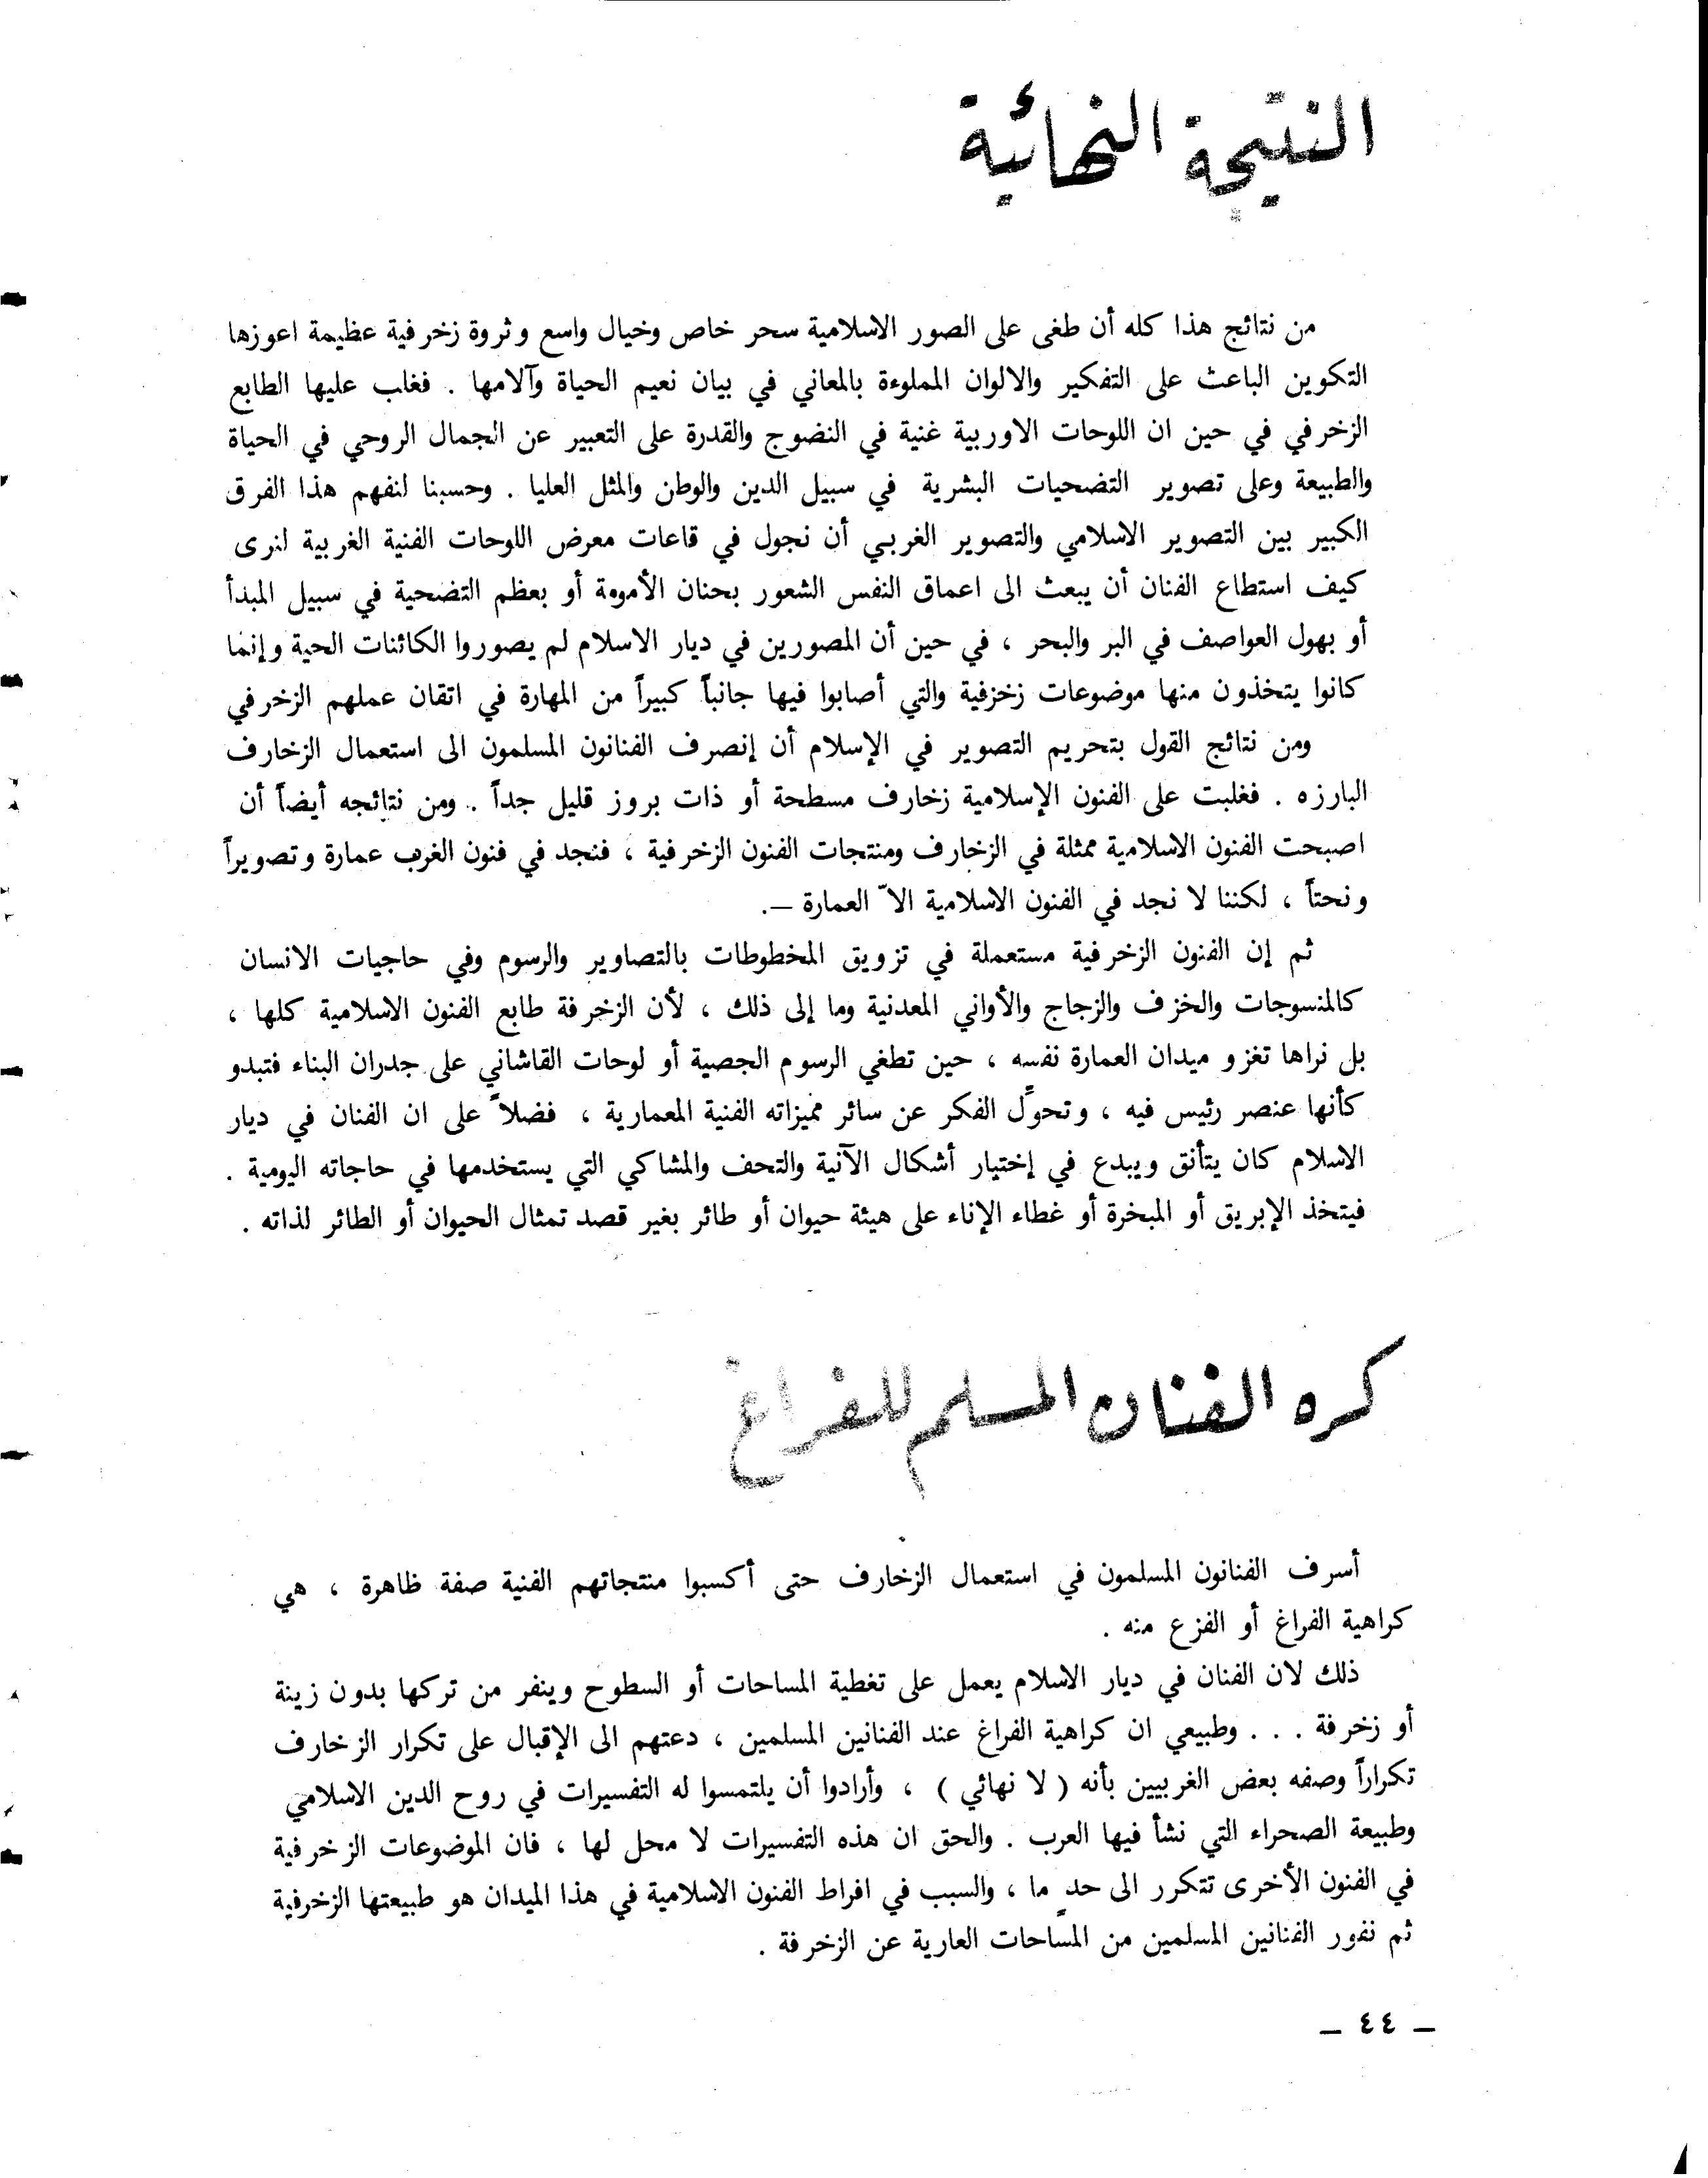 النتيجة النهائية
من نتائج هذا كله أن طغى على الصور الاسلامية سحر خاص وخيال واسع وثروة زخرفية عظيمة اعوزها
التكوين الباعث على التفكير والالوان المملوءة بالمعاني في بيان نعيم الحياة وآلامها . فغلب عليها الطابع
الزخرفي في حين ان اللوحات الاوربية غنية في النضوج والقدرة على التعبير عن الجمال الروحي في الحياة
والطبيعة وعلى تصوير التضحيات البشرية في سبيل الدين والوطن والمثل العليا . وحسبنا لنفهم هذا الفرق
الكبير بين التصوير الاسلامي والتصوير الغربي أن نجول في قاعات معرض اللوحات الفنية الغربية لنرى
كيف استطاع الفنان أن يبعث الى اعماق النفس الشعور بحنان الأمومة أو بعظم التضحية في سبيل المبدأ
أو بهول العواصف في البر والبحر ، في حين أن المصورين في ديار الاسلام لم يصوروا الكائنات الحية وإنما
كانوا يتخذون منها موضوعات زخزفية والتي أصابوا فيها جانباً كبيراً من المهارة في اتقان عملهم الزخرفي
ومن نتائج القول بتحريم التصوير في الإسلام أن إنصرف الفنانون المسلمون الى استعمال الزخارف
البارزه . فغلبت على الفنون الإسلامية زخارف مسطحة أو ذات بروز قليل جداً . ومن نتائجه أيضاً أن
اصبحت الفنون الاسلامية ممثلة في الزخارف ومنتجات الفنون الزخرفية ، فنجد في فنون الغرب عمارة وتصويراً
ونحتاً ، لكننا لا نجد في الفنون الاسلامية الاّ العمارة –.
ثم إن الفنون الزخرفية مستعملة في تزويق المخطوطات بالتصاوير والرسوم وفي حاجيات الانسان
كالمنسوجات والخزف والزجاج والأواني المعدنية وما إلى ذلك ، لأن الزخرفة طابع الفنون الاسلامية كلها ،
بل نراها تغزو ميدان العمارة نفسه ، حين تطغي الرسوم الجصية أو لوحات القاشاني على جدران البناء فتبدو
كأنها عنصر رئيس فيه ، وتحوّل الفكر عن سائر مميزاته الفنية المعمارية ، فضلاً على ان الفنان في ديار
الاسلام كان يتأنق ويبدع في إختيار أشكال الآنية والتحف والمشاكي التي يستخدمها في حاجاته اليومية .
فيتخذ الإبريق أو المبخرة أو غطاء الإناء على هيئة حيوان أو طائر بغير قصد تمثال الحيوان أو الطائر لذاته .
كره الفنان المسلم للفراغ
أسرف الفنانون المسلمون في استعمال الزخارف حتى أكسبوا منتجاتهم الفنية صفة ظاهرة ، هي
كراهية الفراغ أو الفزع منه .
ذلك لان الفنان في ديار الاسلام يعمل على تغطية المساحات أو السطوح وينفر من تركها بدون زينة
أو زخرفة . . . وطبيعي ان كراهية الفراغ عند الفنانين المسلمين ، دعتهم الى الإقبال على تكرار الزخارف
تكراراً وصفه بعض الغربيين بأنه ( لا نهائي ) ، وأرادوا أن يلتمسوا له التفسيرات في روح الدين الاسلامي
وطبيعة الصحراء التي نشأ فيها العرب . والحق ان هذه التفسيرات لا محل لها ، فان الموضوعات الزخرفية
في الفنون الأخرى تتكرر الى حدٍ ما ، والسبب في افراط الفنون الاسلامية في هذا الميدان هو طبيعتها الزخرفية
ثم نفور الفنانين المسلمين من المساحات العارية عن الزخرفة .
– ٤٤ –